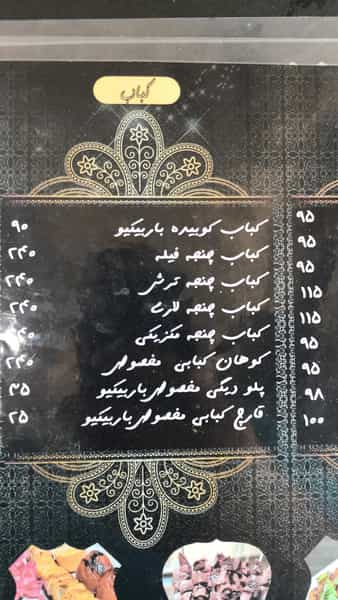 کباب
کباب کوبیده باربیکیو ۹۰
کباب چنجه فیله ۲۴۰
کباب چنجه ترشی ۲۴۰
کباب چنجه ۲۴۰
کباب چنجه مکزیکی ۲۴۰
کوهان کبابی مخصوص ۲۴۰
پلو دیگی مخصوص باربیکیو ۳۵
قارچ کبابی مخصوص باربیکیو ۲۵
۹۵
۹۵
۹۵
۱۱۵
۱۱۵
۹۵
۹۵
۹۸
۱۰۰